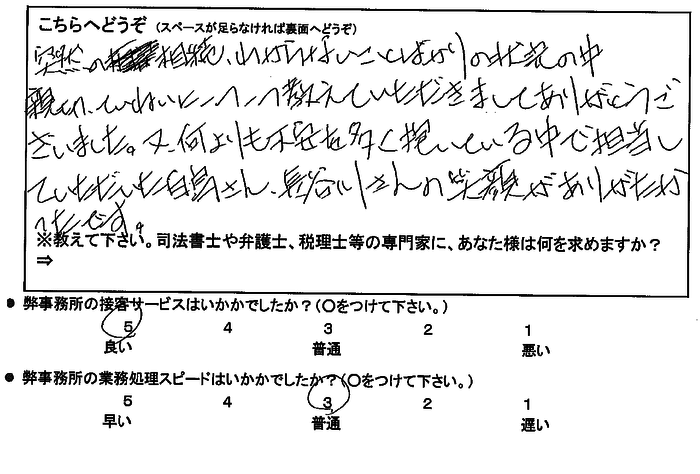 こちらへどうぞ（スペースが足らなければ裏面へどうぞ）
突然の相続、わからないことばかりの状況の中
親切、ていねいに一つ一つ教えていただきましてありがとうご
ざいました。又、何よりも不安を多く抱いている中で担当し
ていただいた白鳥さん、長谷川さんの笑顔がありがたか
ったです。
※教えて下さい。司法書士や弁護士、税理士等の専門家に、あなた様は何を求めますか？
⇒
● 弊事務所の接客サービスはいかかでしたか？（〇をつけて下さい。）
5 4 3 2 1
良い 普通 悪い
● 弊事務所の業務処理スピードはいかかでしたか？（〇をつけて下さい。）
5 4 3 2 1
早い 普通 遅い